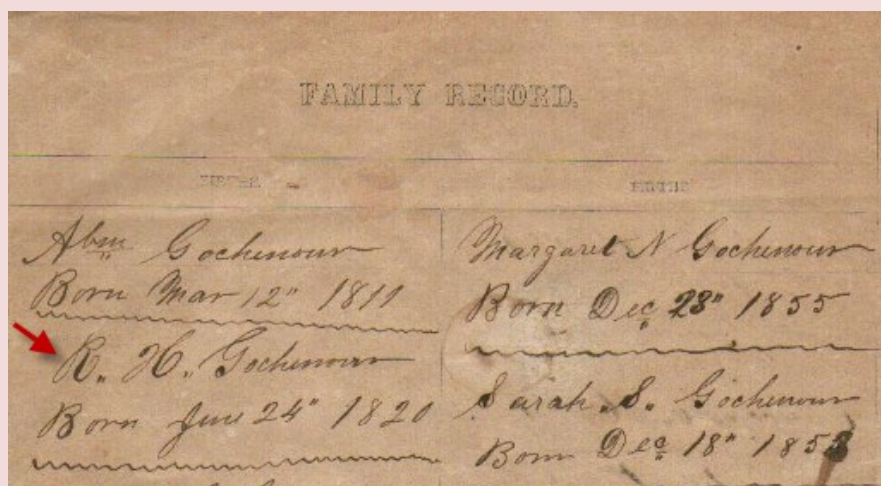 FAMILY RECORD.
BIRTHS
Abm Gochenour
Born Mar 12" 1811
R. H. Gochenour
Born June 24" 1820
BIRTHS
Margaret N Gochenour
Born Dec 28" 1855
Sarah S. Gochenour
Born Dec 18" 1853